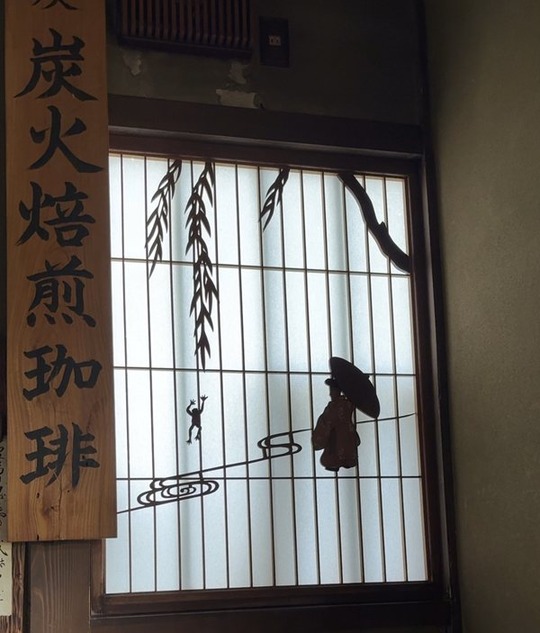 炭火焙煎珈琲